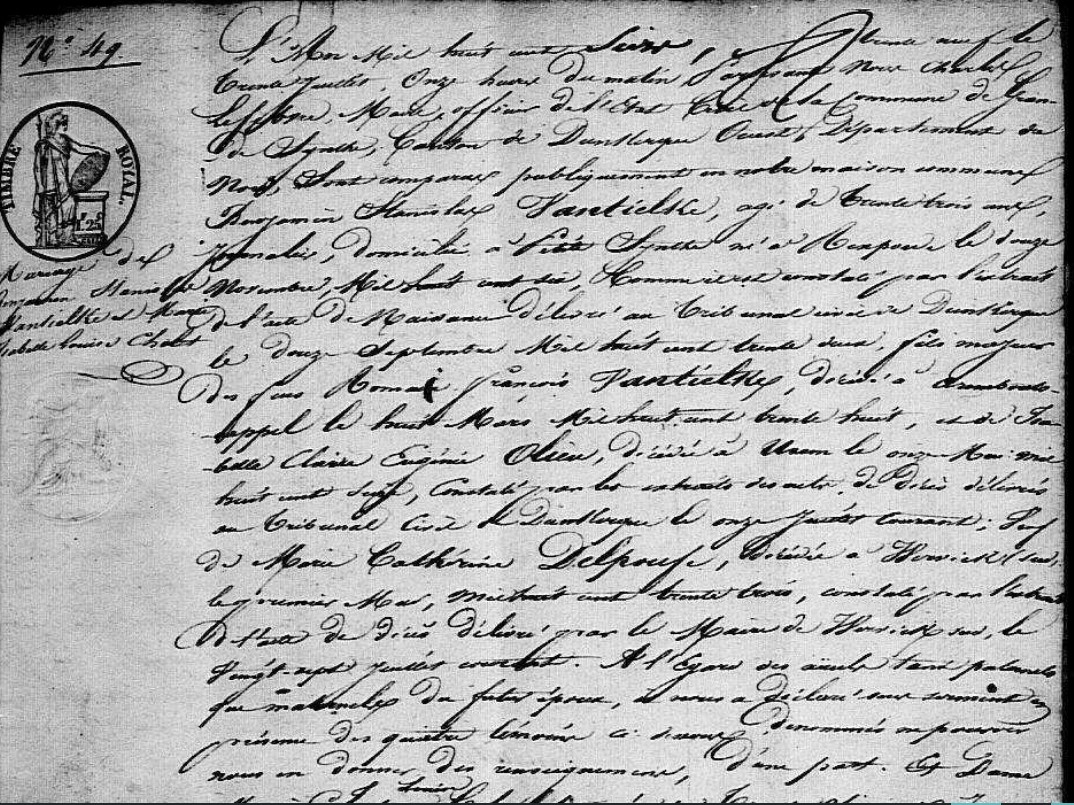 N° 49.
TIMBRE ROYAL
1f 25c
Mariage des
Benjamin Stanislas
Vantielke et Marie
Isabelle Louise Chabot
L'An Mil huit cent trente neuf le
trente Juillet, Onze heures du matin, Pardevant Nous Charles
Lefebvre, Maire, officier de l'état Civil de la Commune de Gran-
de Synthe, Canton de Dunkerque Ouest, Département du
Nord, Sont comparus publiquement en notre maison commune
Benjamin Stanislas Vantielke, agé de trente trois ans,
Journalier, domicilié à Petite Synthe né à Rexpoede le douze
Novembre, Mil huit cent six, Comme il est constaté par l'extrait
de l'acte de Naissance délivré au tribunal civil de Dunkerque
le douze Septembre Mil huit cent trente deux, fils majeur
des feus Romain françois Vantielke, décédé à Armbouts-
cappel le huit Mars Mil huit cent trente huit, et de Isa-
belle Claire Eugénie Olieu, décédée à Uxem le onze Mai mil
huit cent seize, Constaté par les extraits des acts de décès délivrés
au tribunal Civil de Dunkerque le onze Juillet courant; Veuf
de Marie Cathérine, décédée à Wervick sud,
le premier Mai, mil huit cent trente trois, constaté par l'extrait
de l'acte de décès délivré par le Maire de Wervick sud, le
Vingt-sept Juillet courant. A l'Egard des aïeuls tant paternels
que maternels du futur époux, il nous a déclaré sous serment en
présence des quatre témoins ci dessous dénommés ne pouvoir
nous en donner des renseignemens, d'une part. Et Dame